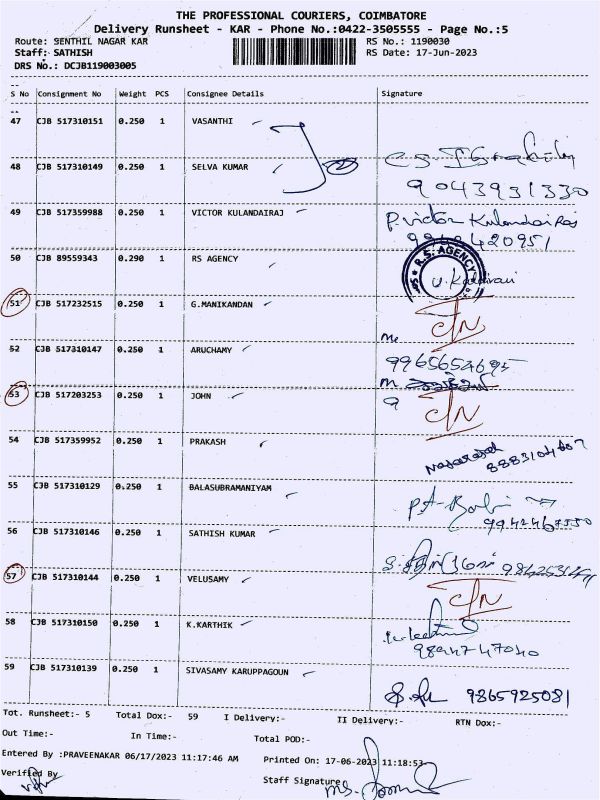 THE PROFESSIONAL COURIERS, COIMBATORE
Delivery Runsheet - KAR - Phone No.:0422-3505555 - Page No.:5
Route: SENTHIL NAGAR KAR RS No.: 1190030
Staff: SATHISH RS Date: 17-Jun-2023
DRS No.: DCJB119003005
S No Consignment No Weight PCS Consignee Details Signature
47 CJB 517310151 0.250 1 VASANTHI
48 CJB 517310149 0.250 1 SELVA KUMAR
9043931330
49 CJB 517359988 0.250 1 VICTOR KULANDAIRAJ P. Victor Kulandai Raj
50 CJB 89559343 0.290 1 RS AGENCY R.S. AGENCY
51 CJB 517232515 0.250 1 G.MANIKANDAN
52 CJB 517310147 0.250 1 ARUCHAMY
53 CJB 517203253 0.250 1 JOHN
54 CJB 517359952 0.250 1 PRAKASH
55 CJB 517310129 0.250 1 BALASUBRAMANIYAM
56 CJB 517310146 0.250 1 SATHISH KUMAR
57 CJB 517310144 0.250 1 VELUSAMY
58 CJB 517310150 0.250 1 K.KARTHIK
9894747040
59 CJB 517310139 0.250 1 SIVASAMY KARUPPAGOUN
9865925081
Tot. Runsheet:- 5 Total Dox:- 59 I Delivery:- II Delivery:- RTN Dox:-
Out Time:- In Time:- Total POD:-
Entered By :PRAVEENAKAR 06/17/2023 11:17:46 AM Printed On: 17-06-2023 11:18:53
Verified By Staff Signature